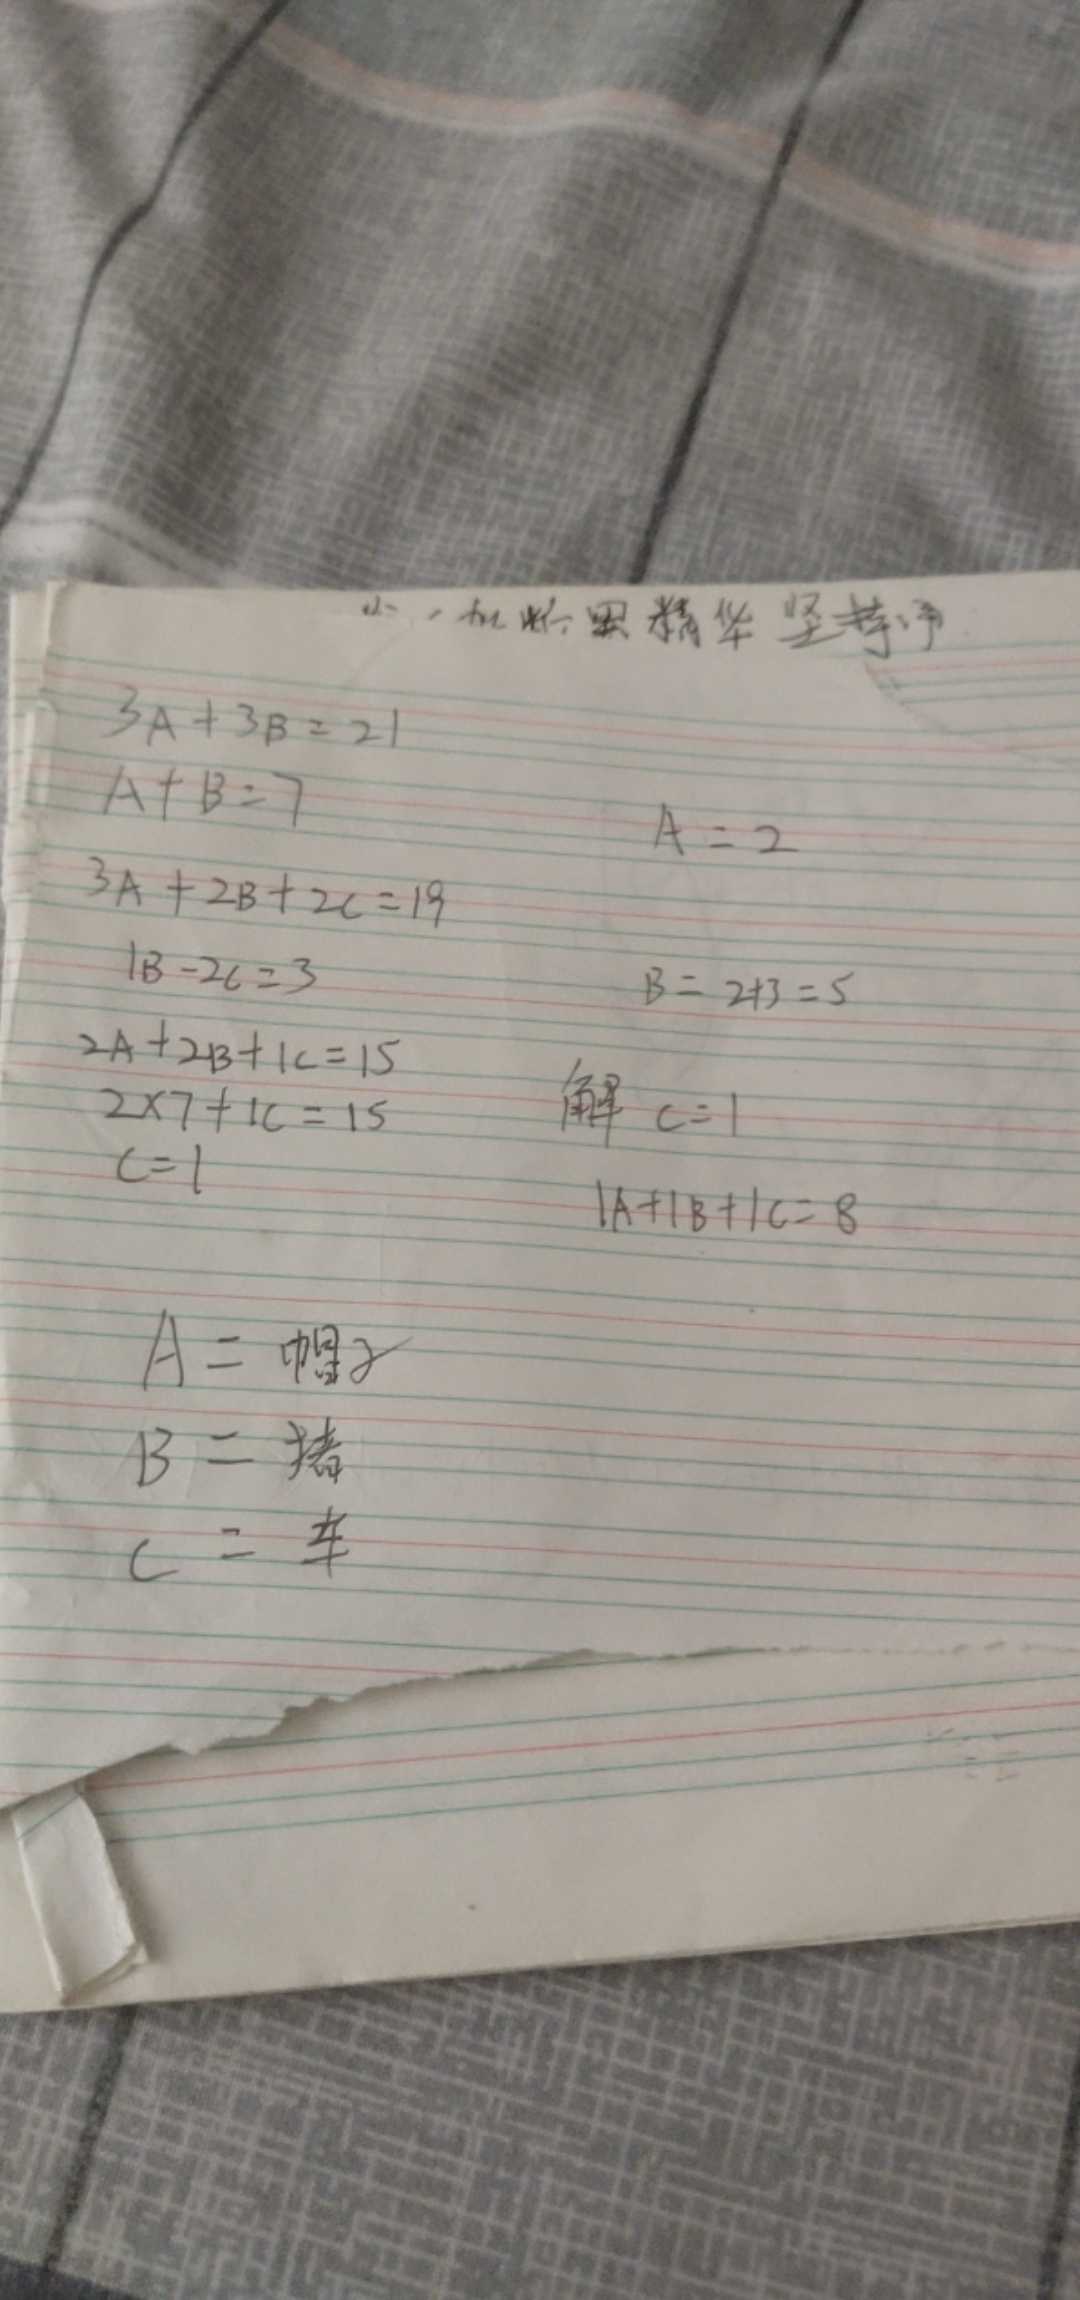 精华坚持
3A+3B=21
A+B=7
A=2
3A+2B+2C=19
1B-2C=3
B=2+3=5
2A+2B+1C=15
2×7+1C=15
解 C=1
C=1
1A+1B+1C=8
A=帽子
B=猪
C=车